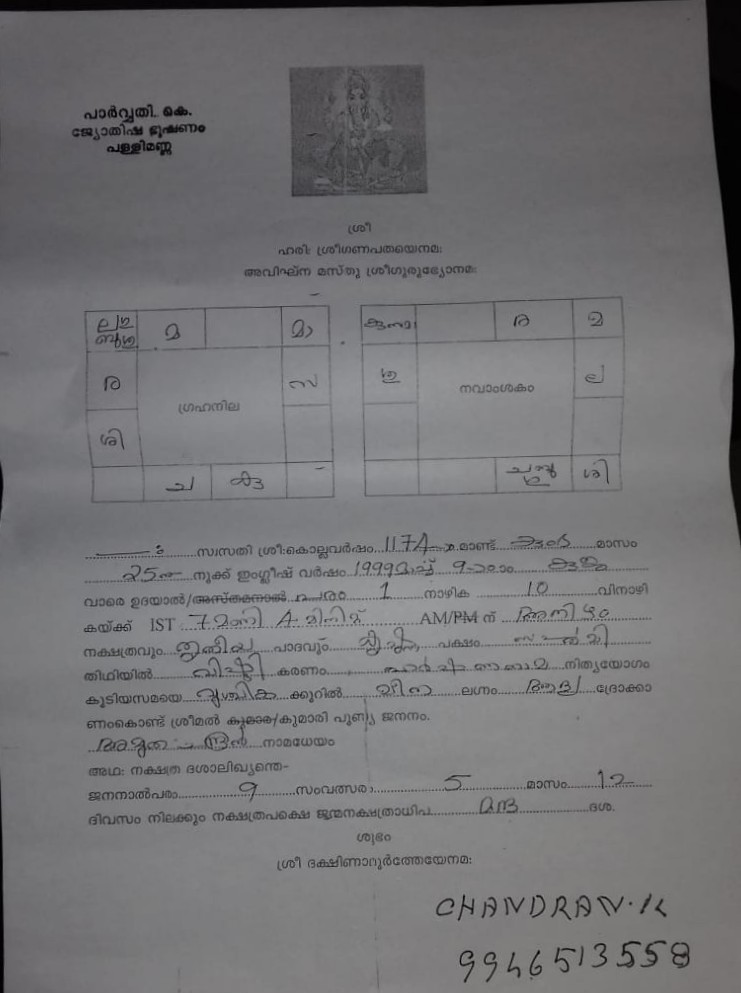 പാർവ്വതി. കെ.
ജ്യോതിഷ ഭൂഷണം
പള്ളിമണ്ണ
ശ്രീ
ഹരി: ശ്രീഗണപതയെനമ:
അവിഘ്ന മസ്തു ശ്രീഗുരുഭ്യോനമ:
ല ഗു ബു ശു മ മാ
ര സ
ഗ്രഹനില
ശി
ച കു
ര മ
നവാംശകം ല
ശി
സ്വസതി ശ്രീ:കൊല്ലവർഷം 1174 മാണ്ട് കുംഭ മാസം
25 നുക്ക് ഇംഗ്ലീഷ് വർഷം 1999 മാർച്ച് 9-ാം കുജ
വാരെ ഉദയാൽ/അസ്തമനാൽ പരം 1 നാഴിക 10 വിനാഴി
കയ്ക്ക് IST 7 മണി 4 മിനിട്ട് AM/PM ന് അനിഴം
നക്ഷത്രവും തൃതീയ പാദവും കൃഷ്ണ പക്ഷം സപ്തമി
തിഥിയിൽ വിഷ്ടി കരണം ഹർഷണനാമ നിത്യയോഗം
കൂടിയസമയെ വൃശ്ചിക ക്കൂറിൽ മീന ലഗ്നം ആദ്യ ദ്രോക്കാ
ണംകൊണ്ട് ശ്രീമൽ കുമാര/കുമാരി പുണ്യ ജനനം.
നാമധേയം
അഥ: നക്ഷത്ര ദശാലിഖ്യന്തെ-
ജനനാൽപരം 9 സംവത്സരം 5 മാസം 12
ദിവസം നിലക്കും നക്ഷത്രപക്ഷെ ജന്മനക്ഷത്രാധിപ മന്ദ ദശ.
ശുഭം
ശ്രീ ദക്ഷിണാമൂർത്തേയേനമ:
CHANDRAN.K
9946513558